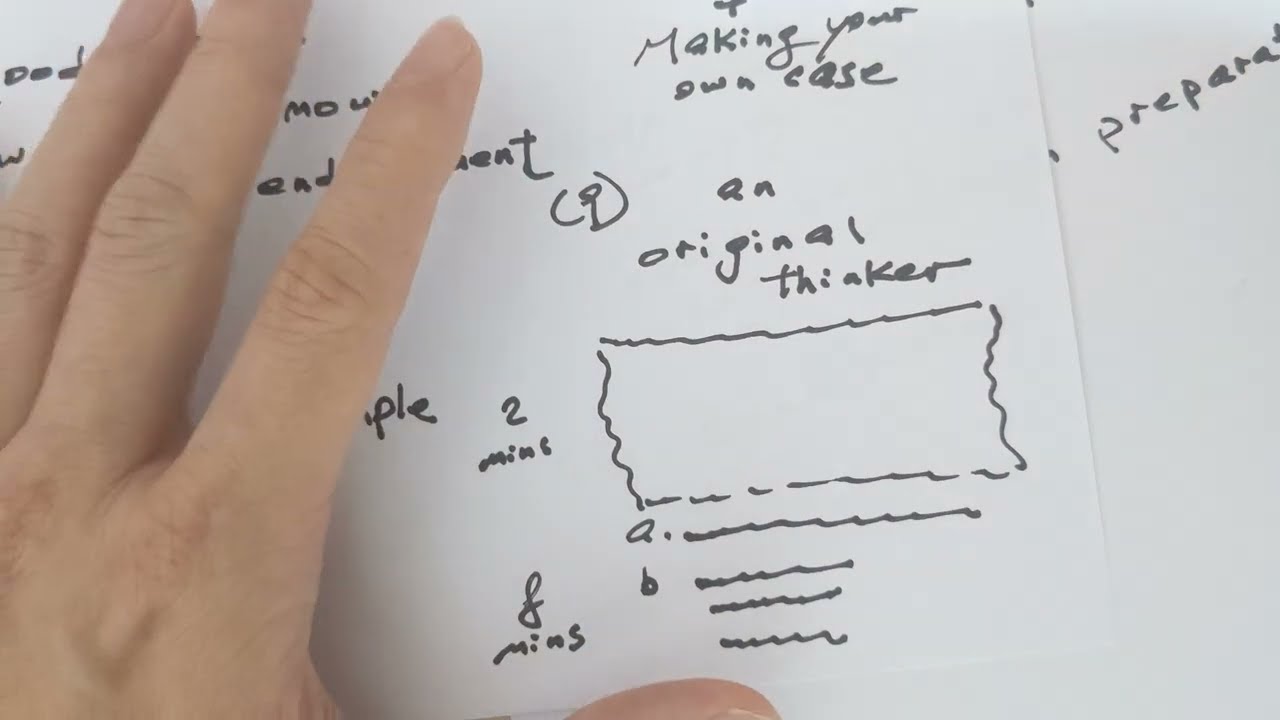 Making your
own case
preparat
ood
mou
end ment
(a)
an
original
thinker
ple
2
mins
a.
b
8
mins